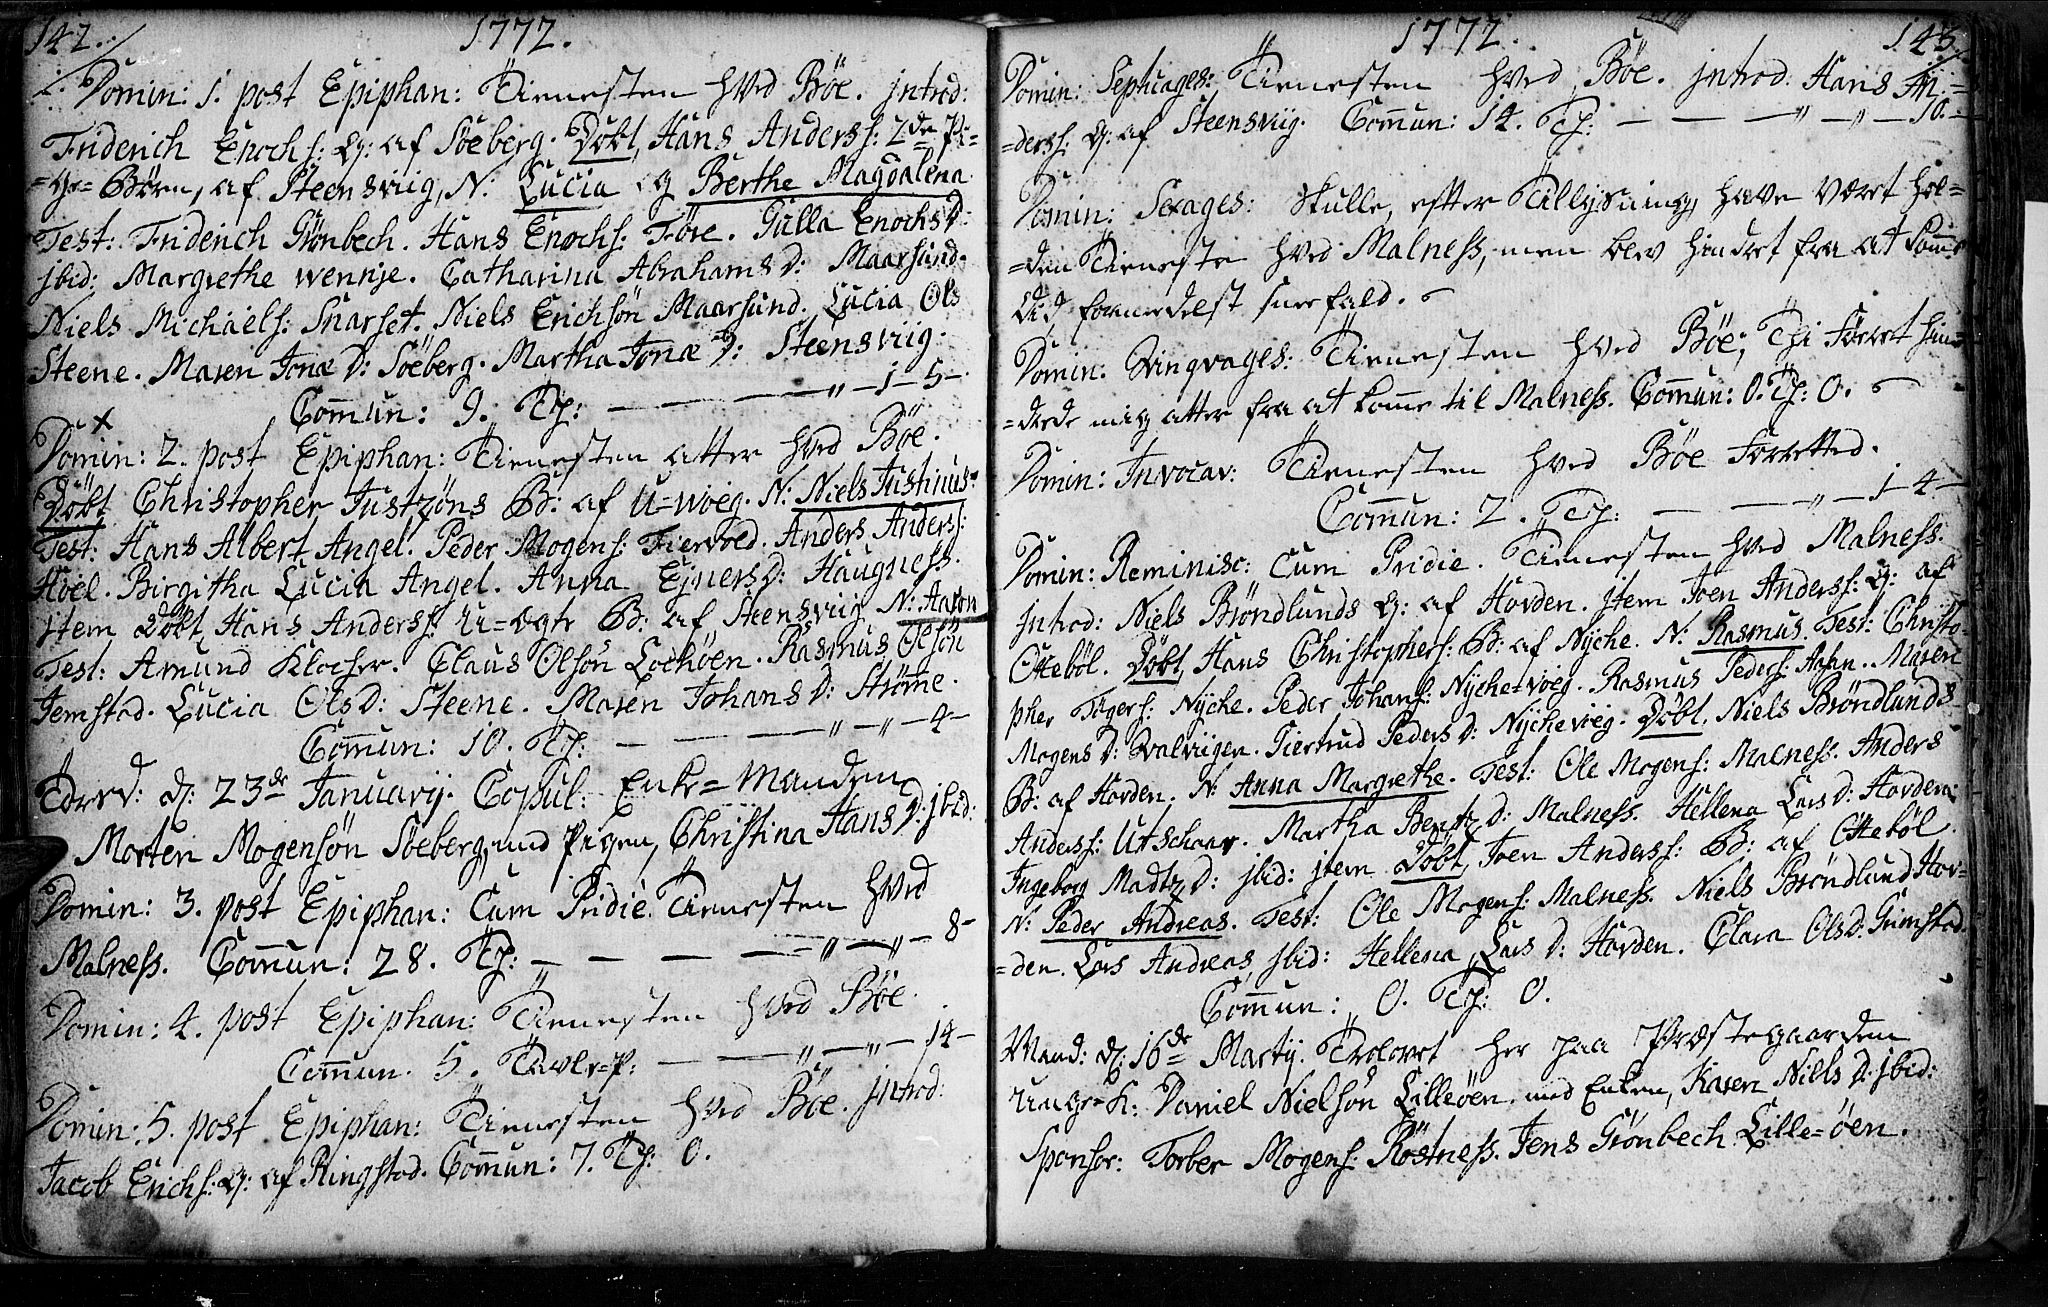 142.
1772.
Domin: 1. post Epiphan: Tienesten hved Böe. jntrod:
Friderich Enochs: Q: af Söeberg. Döbt, Hans Anderss: 2de Pi=
=ge=Börn, af Steensviig, N: Lucia og Berthe Magdalena
Test: Friderich Grönbech. Hans Enochs: Före. Gulla EnochsD:
jbid: Margrethe wennje. Catharina AbrahamsD: Maarsund.
Niels Michaels: Snarset. Niels Erichsön Maarsund. Lucia Ols
Steene. Maren JonæD: Söeberg. Martha JonæD: Steensviig.
Commun: 9. Tf: — — — „ — 1 — 5 —
Domin: 2. post Epiphan: Tienesten atter hved Böe.
Döbt Christopher Justzöns B: af U=woeg. N: Niels Justinus.
Test: Hans Albert Angel. Peder Mogens: Fiervold. Anders Anderss:
Hoel. Birgitha Lucia Angel. Anna EjnersD: Haugness.
jtem Döbt, Hans Anderss: U=ægte B: af Steensviig, N: Aaron
Test: Amund Klocher. Claus Olsön Lochöen. Rasmus Olsön
Jemstad. Lucia OlsD: Steene. Maren JohansD: Ströme.
Commun: 10. Tf: — — — „ — „ — 4 —
d: 23de Januarij. Copul: Enke=Manden
Morten Mogensön Söeberg, med Pigen, Christina HansD: jbid:
Domin: 3. post Epiphan: Cum Pridie. Tienesten hved
Malness. Commun: 28. Tf: — — — — „ — „ — 8 —
Domin: 4. post Epiphan: Tienesten hved Böe.
Commun. 5. Tavle=P: — — — „ — „ — 14 —
Domin: 5. post Epiphan: Tienesten hved Böe. jntrod:
Jacob Erichs: Q: af Ringstad. Commun: 7. Tf: 0.
1772.
143.
Domin: Septuages: Tienesten hved Böe. jntrod: Hans An=
=derss: Q: af Steensviig. Commun: 14. Tf: — — — „ — „ — 10. —
Domin: Sexages: skulle, efter Tillysning, have været hol=
=den Tieneste hved Malness, men blev hindret fra at komme
did, formedelst sneefald.
Domin: Qvinqvages: Tienesten hved Böe; Thi Föret hin=
=drede mig atter fra at komme til Malness. Commun: 0. Tf: 0.
Domin: Invocav: Tienesten hved Böe Forretted.
Commun: 2. Tf: — — — „ — 1 — 4 —
Domin: Reminisc: Cum Pridie. Tienesten hved Malness.
jntrod: Niels Bröndlunds Q: af Hovden. jtem Joen Anderss: Q: af
Otteböl. Döbt, Hans Christophers: B: af Nyche. N: Rasmus. Test: Christo=
pher Tögers: Nyche. Peder Johans: Nyche=woeg. Rasmus Peders: Aasan. Maren
MogensD: Qvalviigen. Giertrud PedersD: Nychevoeg. Döbt, Niels Bröndlunds
B: af Hovden. N: Anna Margrethe. Test: Ole Mogens: Malness. Anders
Anderss: Utschaar. Martha BentzD: Malness. Hellena LarsD: Hovden.
Ingeborg MadtzD: jbid: jtem Döbt, Joen Anderss: B: af Otteböl.
N: Peder Andreas. Test: Ole Mogens: Malness. Niels Bröndlund Hov=
=den. Lars Andreas, jbid: Hellena LarsD: Hovden. Clara OlsD: Grimstad.
Commun: 0. Tf: 0.
Mand: d: 16de Martij. Trolovet her paa Præstegaarden
Unge=K: Daniel Nielsön Lilleöen, med Enken, Karen NielsD: jbid:
Sponsor: Torber Mogens: Röstness. Jens Grönbech Lille=öen.